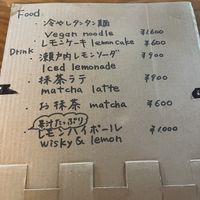 Food
・冷やしタンタン麺 ¥1600
Vegan noodle
・レモンケーキ lemoncake ¥600
Drink
・瀬戸内レモンソーダ ¥900
Iced lemonade
・抹茶ラテ ¥900
matcha latte
・お抹茶 matcha ¥600
果汁たっぷり
・レモンハイボール ¥1000
wisky & lemon